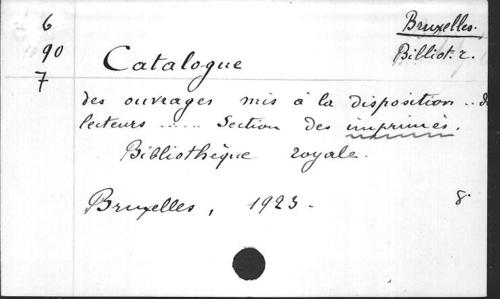 6
90
7
Bruxelles.
Bibliot. r.
Catalogue
des ouvrages mis à la disposition .. d
lecteurs ..... Section des imprimés.
Bibliothèque royale.
Bruxelles, 1923. 8